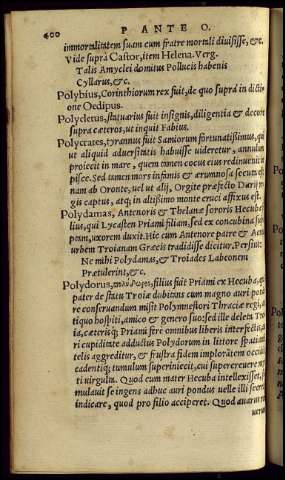 400 P ANTE O.
immortalitatem suam cum fratre mortali diuisisse, &c.
Vide suprà Castor, item Helena. Verg.
Talis Amyclei domitus Pollucis habenis
Cyllarus, &c.
Polybius, Corinthiorum rex fuit, de quo suprà in dictio
one Oedipus.
Polycletus, statuarius fuit insignis, diligentia & decore
supra cæteros, ut inquit Fabius.
Polycrates, tyrannus fuit Samiorum fortunatissimus, qui
ut aliquid aduersitatis habuisse uideretur, annulum
proiecit in mare, quem tamen cocus eius rediuenit in
pisce. Sed tamen mors infamis & ærumnosa secuta est
nam ab Oronte, uel ut alij, Orgite præfecto Darij re
gis captus, atque in altissimo monte cruci affixus est.
Polydamas, Antenoris & Theanæ sororis Hecubæ
lius, qui Lycasten Priami filiam, sed ex concubina sus
ptam, uxorem duxit. Hic cum Antenore patre & Aenea
urbem Troianam Græcis tradidisse dicitur. Persius:
Ne mihi Polydamas, & Troiades Labeonem
Prætulerint, &c.
Polydorus, filius fuit Priami ex Hecuba, quem
pater de statu Troiæ dubitans cum magno auri pondere
re conseruandum misit Polymnestori Thraciæ regi, an
tiquo hospiti, amico & genero suo: sed ille deleta Tro
ia, cæterisque Priami fere omnibus liberis interfectis, au
ri cupiditate adductus Polydorum in littore spatiantem
telis aggreditur, & frustra fidem implorātem occidit
eadentique tumulum superiniecit, cui supercreuere myr
ti uirgulta. Quod cum mater Hecuba intellexisset, si
mulauit se ingens adhuc auri pondus uelle illi secretò
indicare, quod pro filio acciperet. Quod auarus rex
uerum